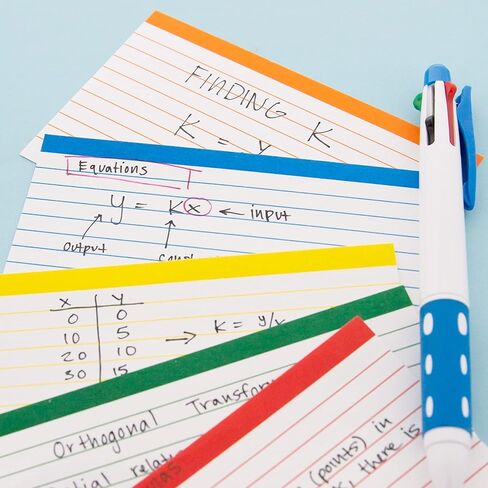 FINDING K
K = y
Equations
y = Kx ← input
output
x y
0 0
10 5
20 10
30 15
→ K = y/x
Orthogonal
(points) in
there is